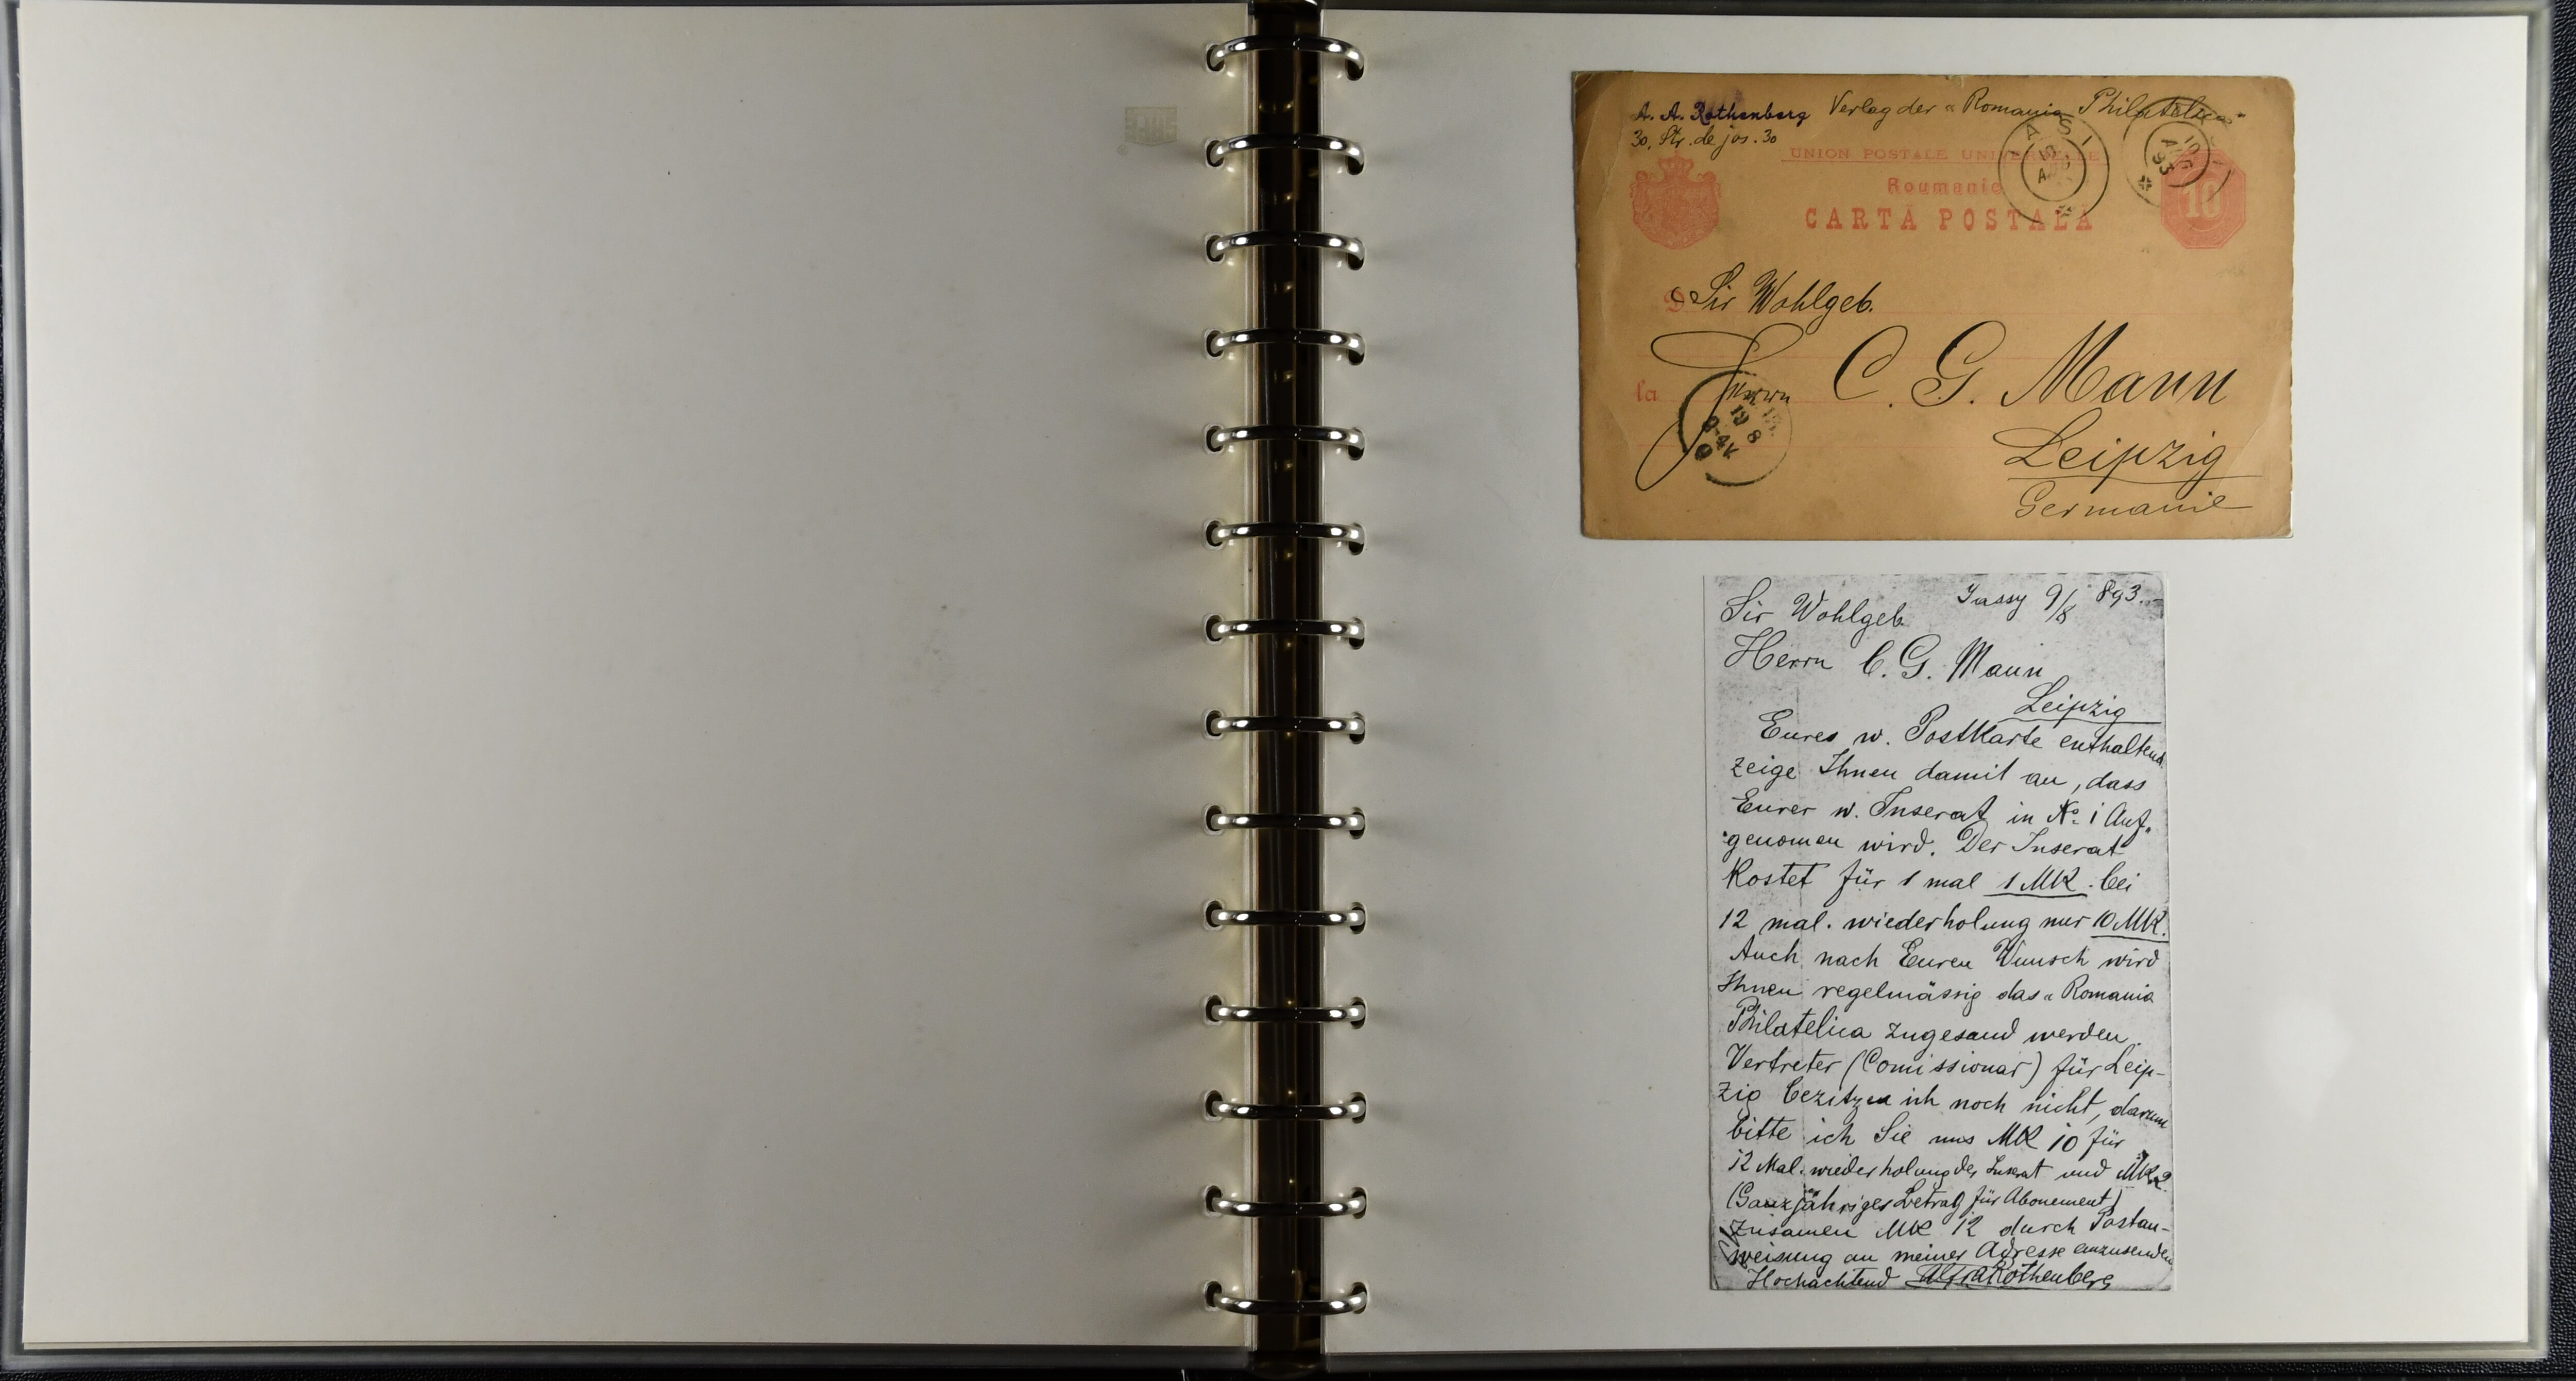 A. A. Rothenberg Verlag der „Romania Philatelica"
30, Str. de jos. 30
UNION POSTALE UNIVERSELLE
Roumanie
CARTĂ POSTALĂ
10
IASI
10 AUG 93
D Sir Wohlgeb.
la Herrn C. G. Mann
19 8
Leipzig
Germanie
Jassy 9/8 893.
Sir Wohlgeb
Herrn C. G. Mann
Leipzig
Eures w. Postkarte enthaltend
zeige Ihnen damit an, dass
Eurer w. Inserat in No 1 Auf„
genomen wird. Der Inserat
kostet für 1 mal 1 MK. bei
12 mal. wiederholung nur 10 MK.
Auch nach Euren Wunsch wird
Ihnen regelmässig das „Romania
Philatelica zugesand werden.
Vertreter (Comissionar) für Leip-
zig bezitzen ich noch nicht, darum
bitte ich Sie uns MK 10 für
12 Mal. wiederholung des Inserat und MK 2
(Ganzjähriger Betrag für Abonement)
Zusamen MK 12 durch Postan-
weisung an meiner Adresse einzusenden
Hochachtend Rothenberg